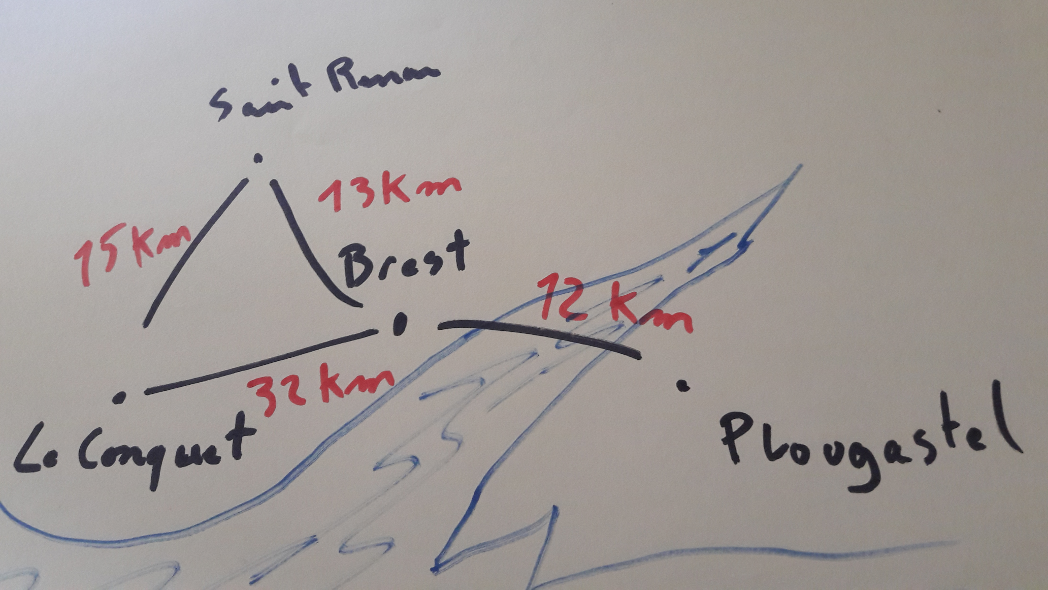 Saint Renan
13 Km
15 Km
Brest
12 Km
32 Km
Le Conquet
Plougastel